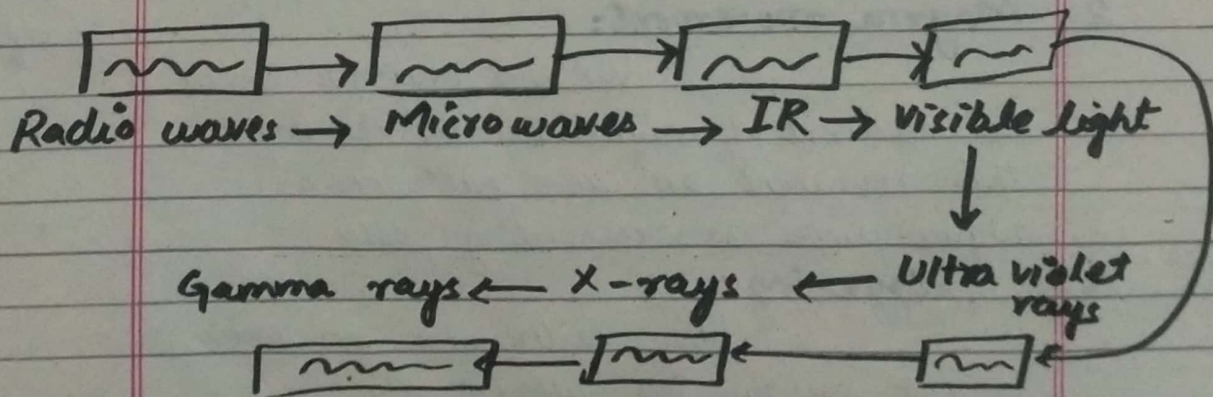 Radio waves → Microwaves → IR → visible light
↓
Gamma rays ← X-rays ← Ultra violet
rays